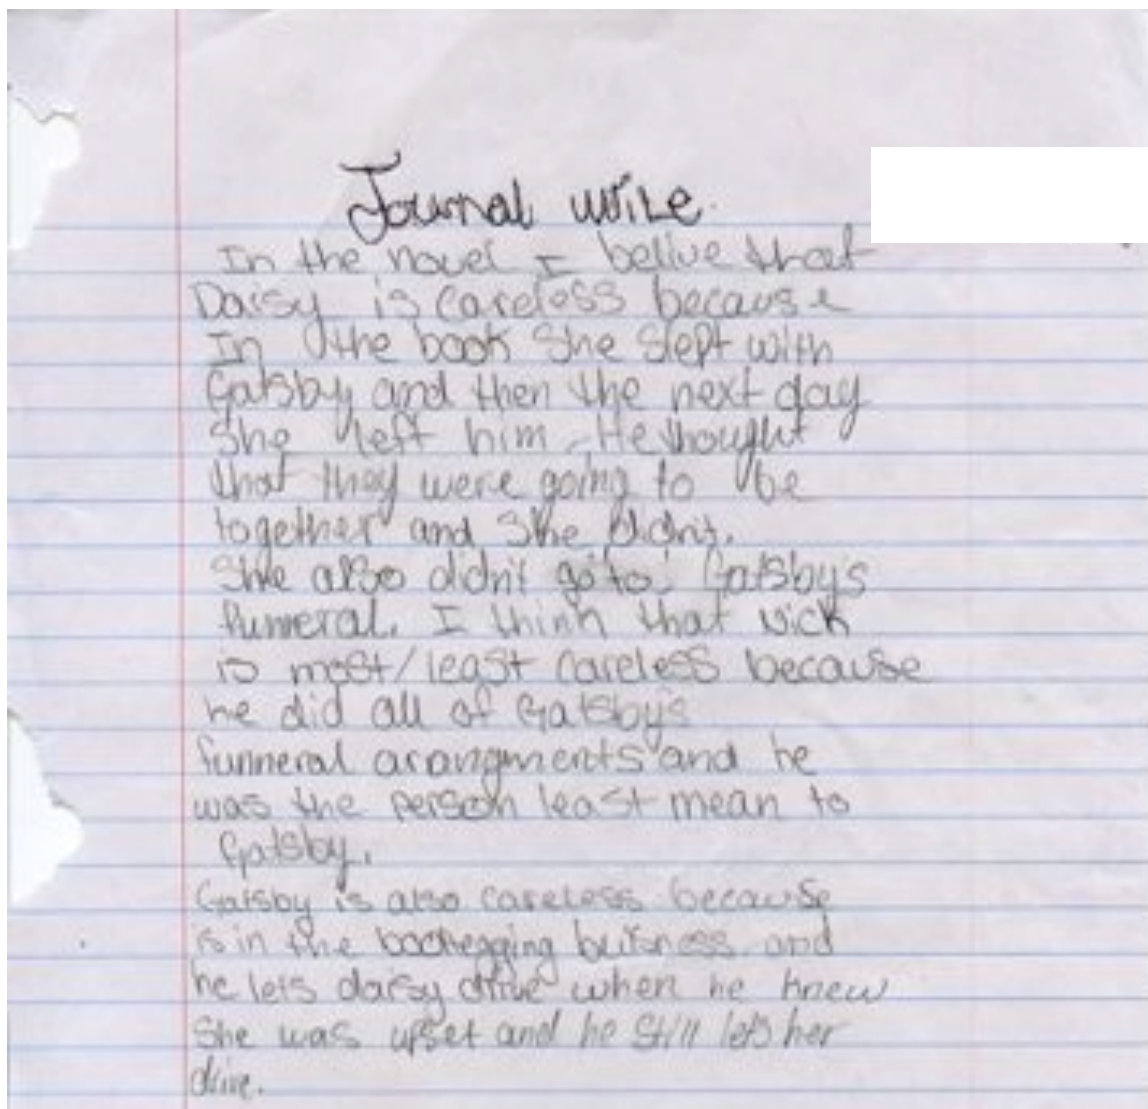 Journal write.
In the novel I belive that
Daisy is careless because
In the book She slept with
Gatsby and then the next day
She left him. He thought
that they were going to be
together and She didnt.
She also didn't go to Gatsby's
funneral. I think that Nick
is most/least careless because
he did all of Gatsby's
funneral arangments and he
was the person least mean to
Gatsby.
Gatsby is also careless because
is in the bootlegging and
he lets daisy drive when he knew
She was upset and he still lets her
drive.